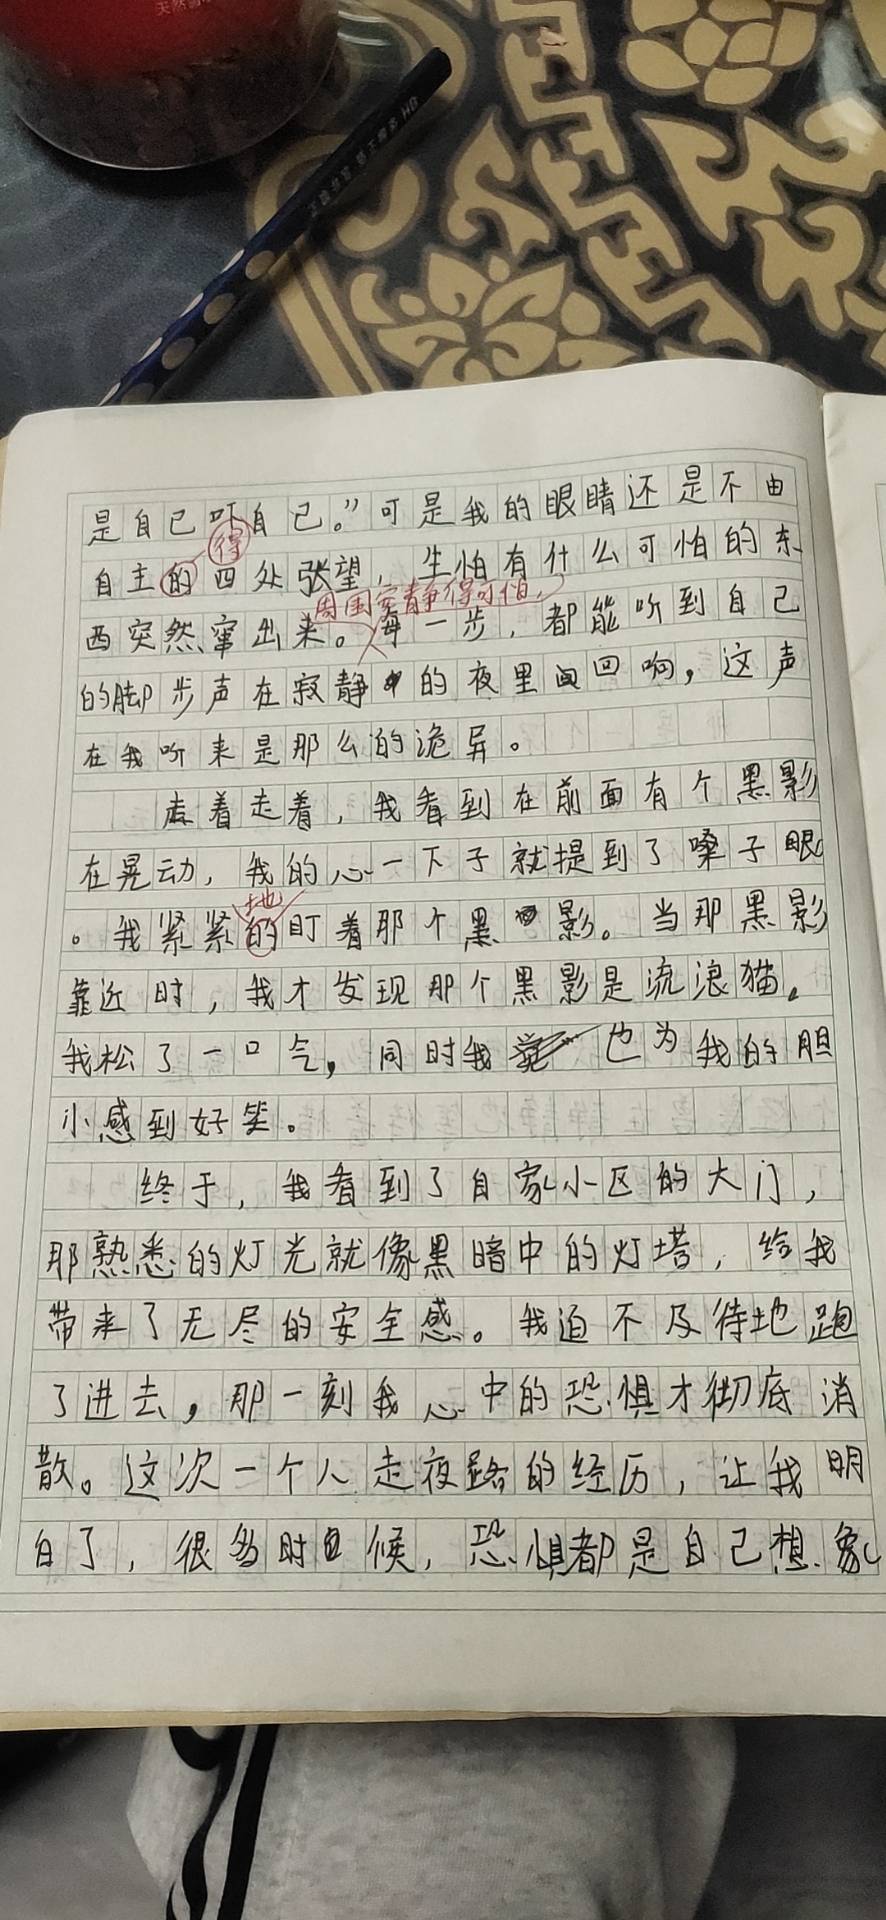 天然
HB
是自己吓自己。”可是我的眼睛还是不由
得
自主的四处张望，生怕有什么可怕的东
周围安静得可怕，
西突然窜出来。每一步，都能听到自己
的脚步声在寂静的夜里回响，这声
在我听来是那么的诡异。
走着走着，我看到在前面有个黑影
在晃动，我的心一下子就提到了嗓子眼
地
。我紧紧的盯着那个黑影。当那黑影
靠近时，我才发现那个黑影是流浪猫。
我松了一口气，同时我也为我的胆
小感到好笑。
终于，我看到了自家小区的大门，
那熟悉的灯光就像黑暗中的灯塔，给我
带来了无尽的安全感。我迫不及待地跑
了进去，那一刻我心中的恐惧才彻底消
散。这次一个人走夜路的经历，让我明
白了，很多时候，恐惧都是自己想象